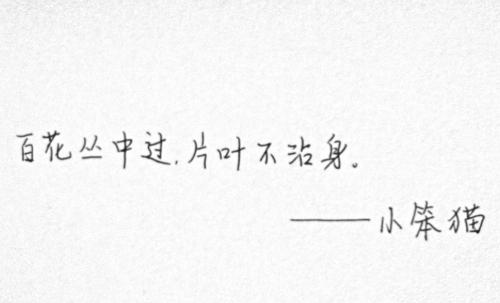 百花丛中过,片叶不沾身。
——小笨猫